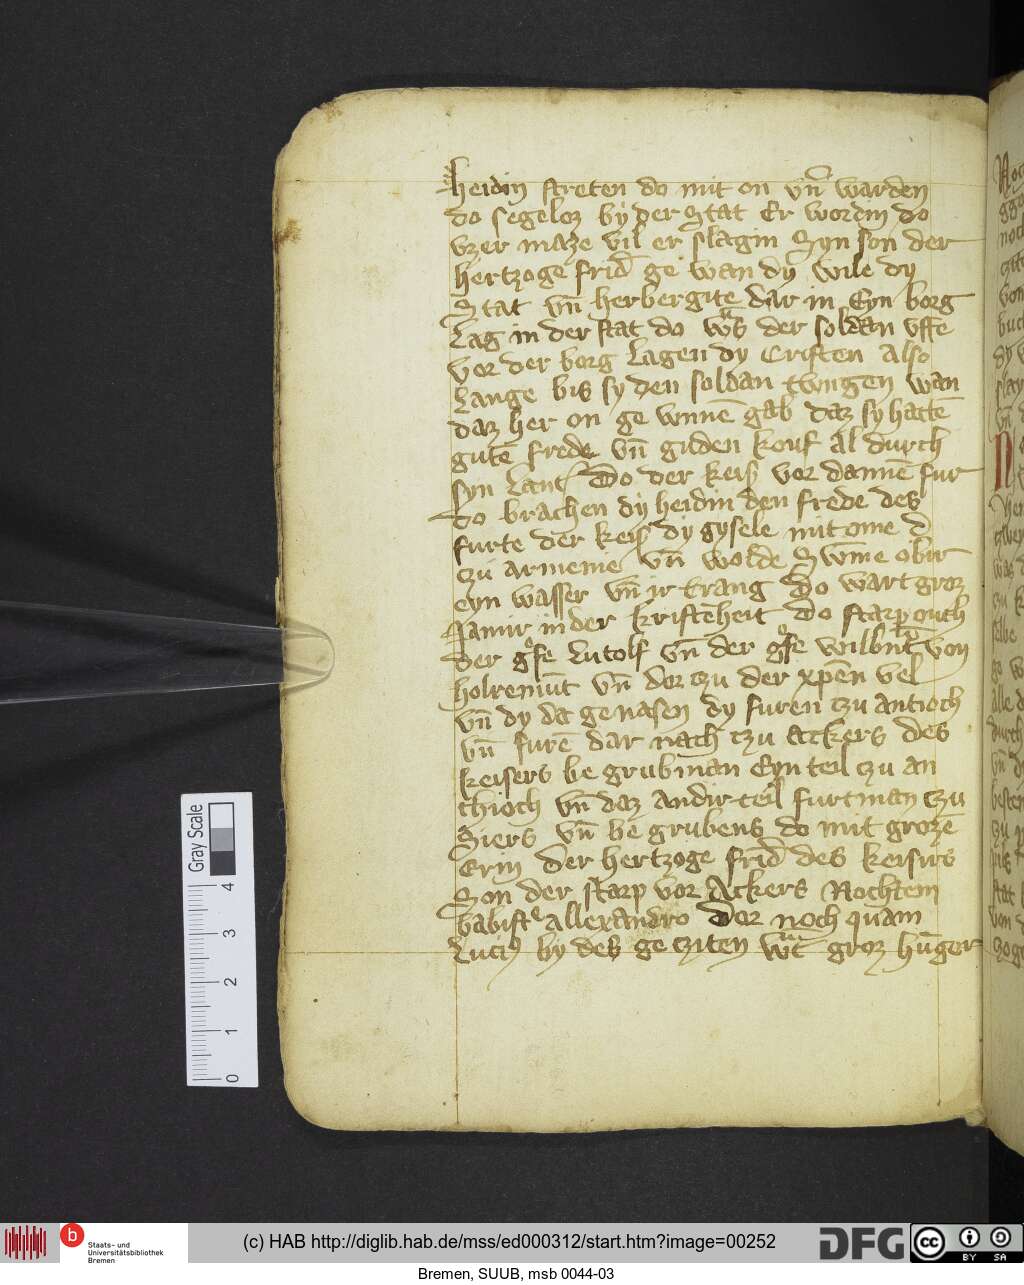 heidin streten do mit on vn̄ warden
do segeloz by der Stat Er wordin do
vzer maze vil er slagin Syn son der
hertzoge frid̄ ge wan dy wile dy
Stat vn̄ herbergite dar in Eyn borg
Lag in der stat do ws der soldan vffe
vor der borg Lagen dy Cristen Also
Lange bis sy den soldan twngen wan
daz her on ge wnnē gab daz sy hattē
gutē frede vn̄ guden kouf al durch
syn Lant Do der keis vor dannē fur
do brachen dy heidin den frede des
furte der keis dy gysele mit ome
czu armenie vn̄ wolde Swīme obir
eyn wasser vn̄ irtrang Do wart groz
Jamir in der kristēheit Do starp ouch
der gfe Lutolf vn̄ der gfe wilbrāt von
holremūt vn̄ dor czu der xpēn vel
vn̄ dy da genasen dy furen czu antioch
vn̄ furē dar nach czu Ackers des
keisers be grub man Eyn teil czu an
thioch vn̄ daz andir teil furt man czu
Siers vn̄ be grubens do mit grozē
Erin der hertzoge frid̄ des keisirs
Son der starp vor Ackers Noch dem
babiste allexandro dor noch quam
Luci by des ge cziten wt groz hūger
Gray Scale
4
3
2
1
0
b
Staats- und
Universitätsbibliothek
Bremen
(c) HAB http://diglib.hab.de/mss/ed000312/start.htm?image=00252
DFG
cc
BY SA
Bremen, SUUB, msb 0044-03